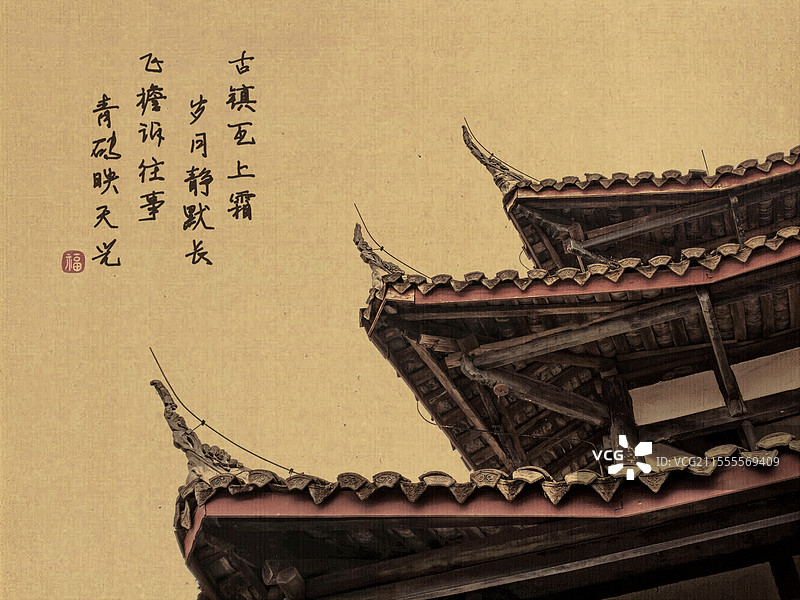 古镇瓦上霜
岁月静默长
飞檐诉往事
青砖映天光
福
VCG
ID: VCG211555569409